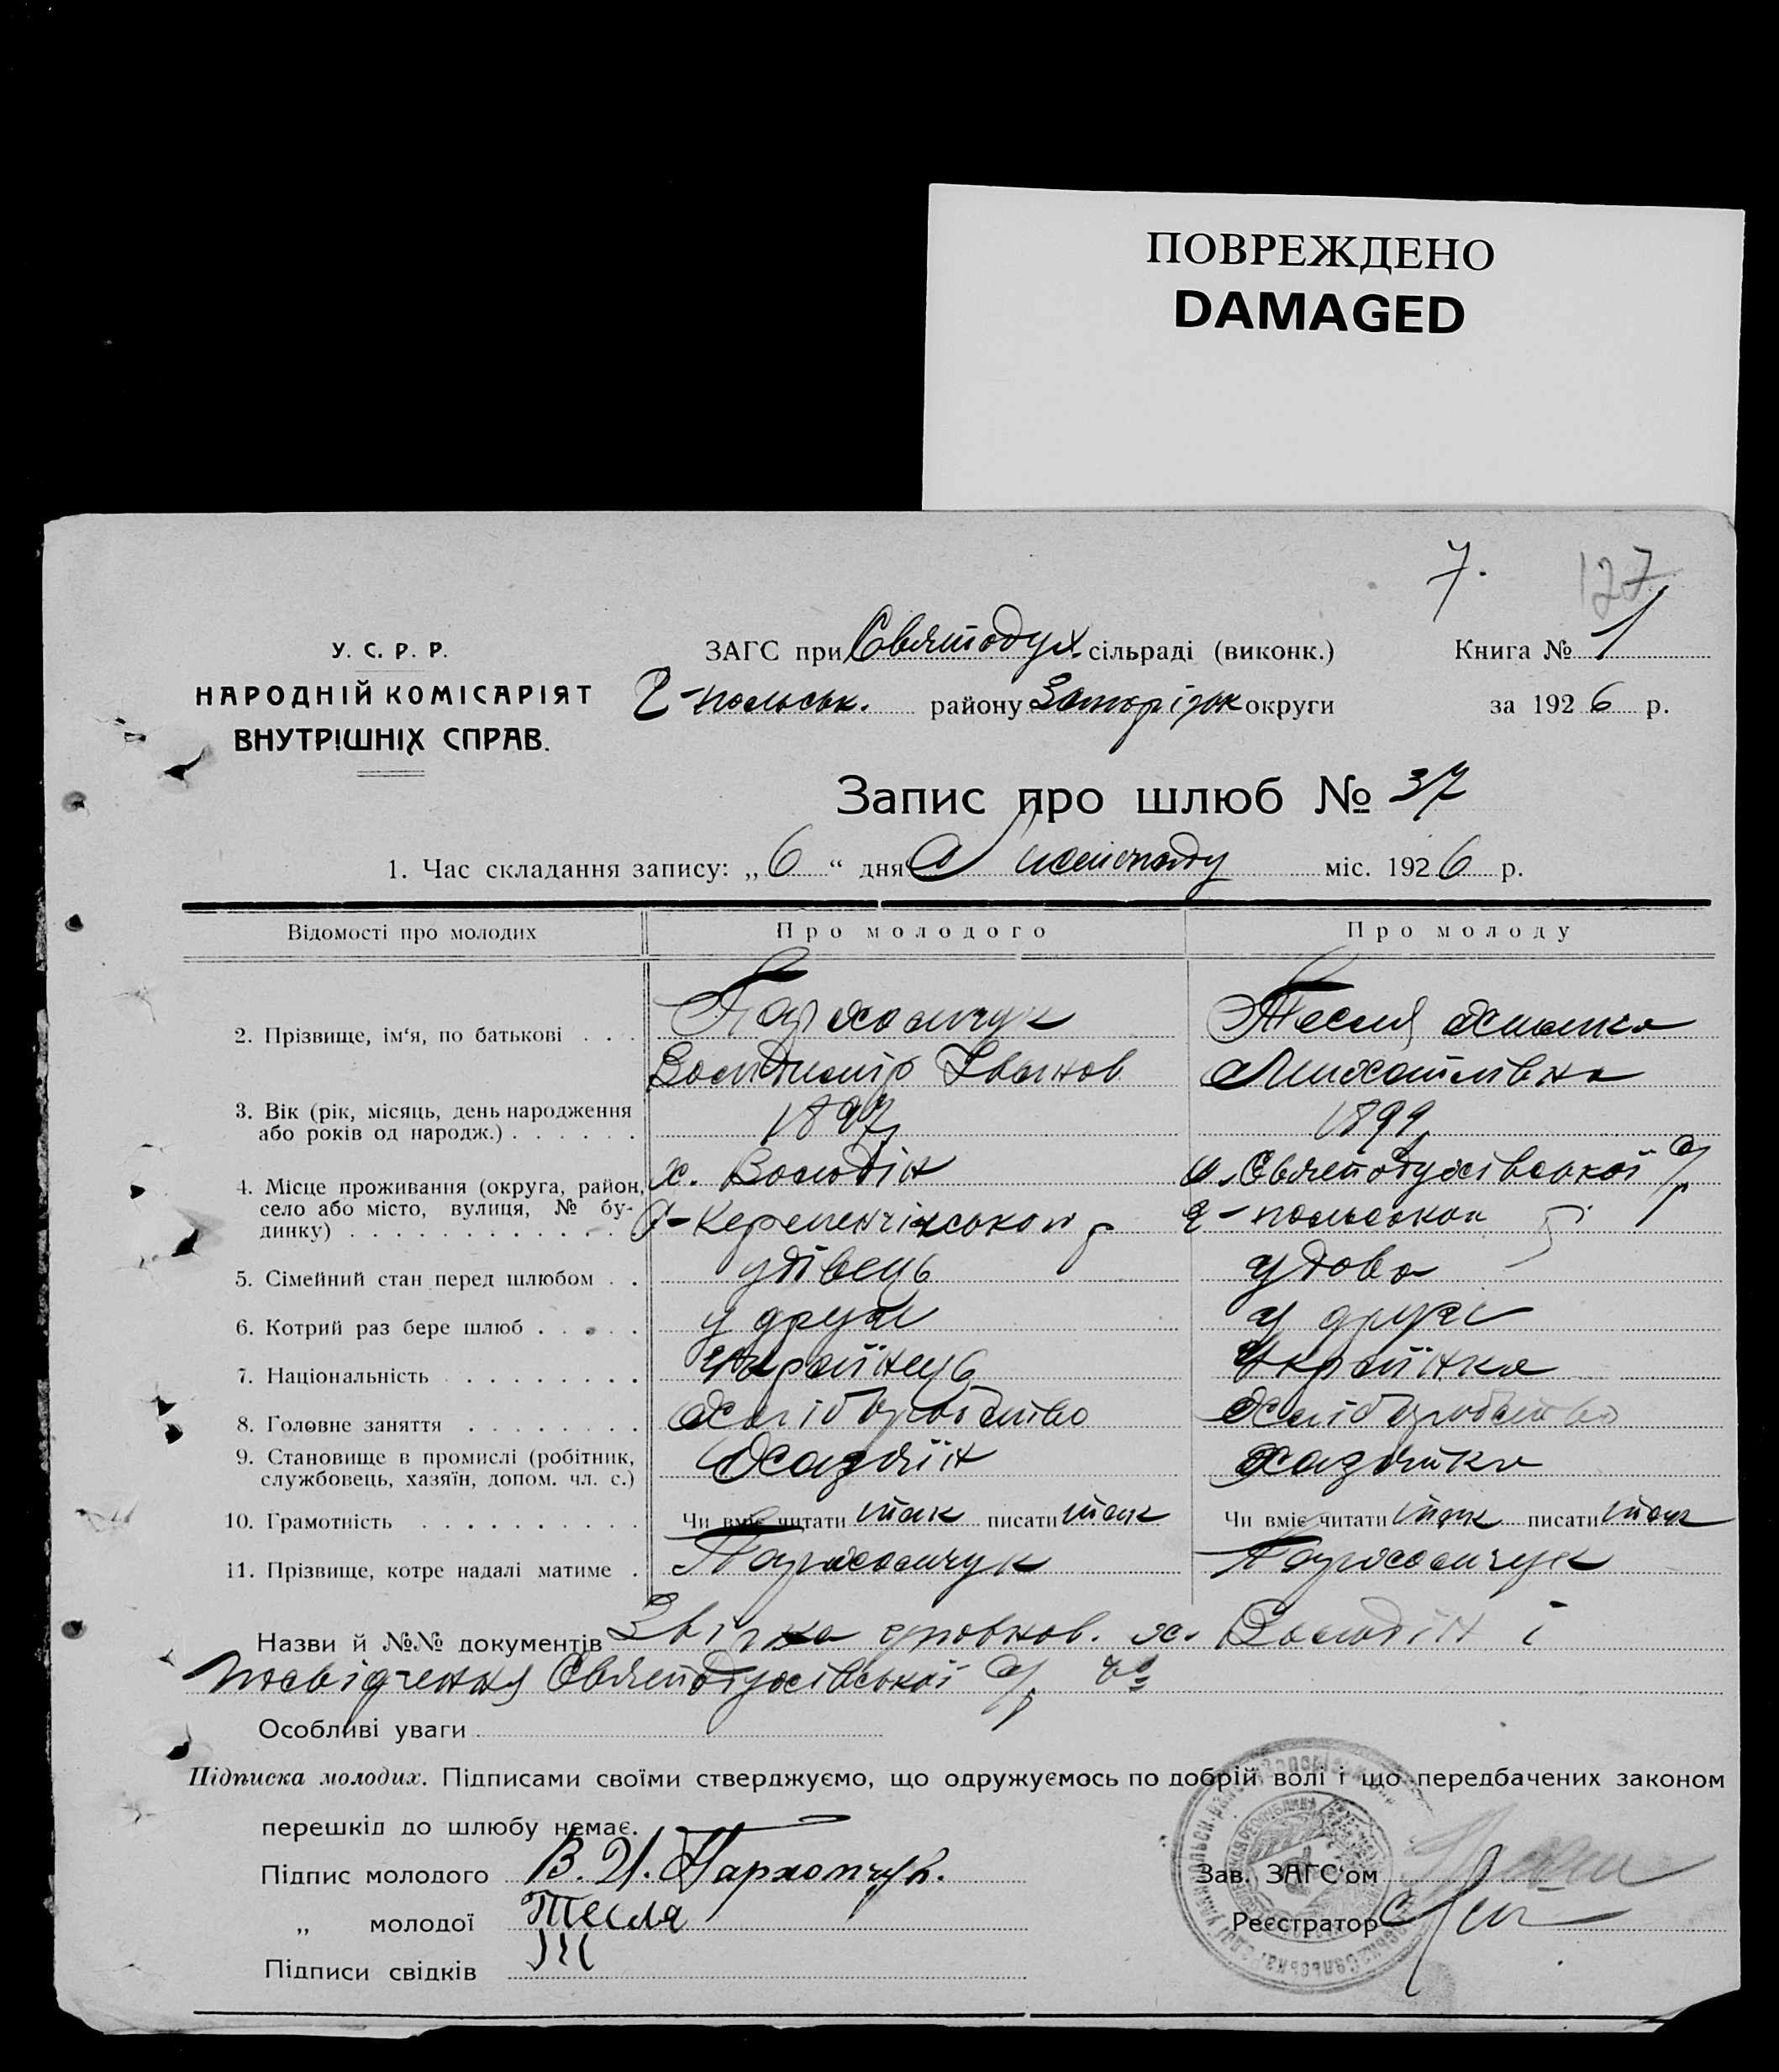 ПОВРЕЖДЕНО
DAMAGED
7.
127
У. С. Р. Р.
НАРОДНІЙ КОМІСАРІЯТ
ВНУТРІШНІХ СПРАВ.
ЗАГС при Святодух. сільраді (виконк.)
Книга № 1
Г-польськ. району Запорізьк округи
за 1926 р.
Запис про шлюб № 37
1. Час складання запису: „6“ дня листопаду міс. 1926 р.
Відомості про молодих
Про молодого
Про молоду
2. Прізвище, ім‘я, по батькові . . .
Пархомчук
Володимір Іванов
Тесля
Михайлівна
3. Вік (рік, місяць, день народження
або років од народж.) . . . . . .
1897
1899
4. Місце проживання (округа, район,
село або місто, вулиця, № бу-
динку) . . . . . . . . . . . .
х. Володін
Керменчінського р
с. Святодухівської с/р
Г-польського р
5. Сімейний стан перед шлюбом . .
удівець
удова
6. Котрий раз бере шлюб . . . . .
у друге
у друге
7. Національність . . . . . . . . .
Українець
Українка
8. Головне заняття . . . . . . . .
хліборобство
хліборобство
9. Становище в промислі (робітник,
службовець, хазяїн, допом. чл. с.)
Хазяїн
хазяйка
10. Грамотність . . . . . . . . . .
Чи вміє читати так писати так
Чи вміє читати так писати так
11. Прізвище, котре надалі матиме .
Пархомчук
Пархомчук
Назви й №№ документів х. Володін і
посвідчення Святодухівської с/р
Особливі уваги
Підписка молодих. Підписами своїми стверджуємо, що одружуємось по добрій волі і що передбачених законом
перешкід до шлюбу немає.
Підпис молодого В. И. Пархомчук.
„ молодої Тесля
Підписи свідків
Зав. ЗАГС‘ом
Реєстратор